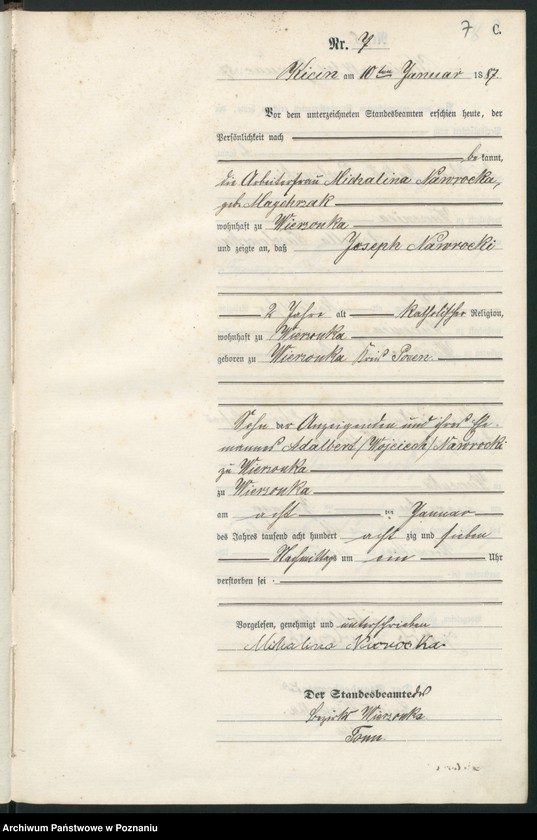 7 C.
Nr. 7
Kicin am 10ten Januar 1887
Vor dem unterzeichneten Standesbeamten erschien heute, der
Persönlichkeit nach
be kannt,
die Arbeiterfrau Michalina Nawrocka,
geb. Majchrzak
wohnhaft zu Wierzonka
und zeigte an, daß Joseph Nawrocki
2 Jahre alt katholischer Religion,
wohnhaft zu Wierzonka
geboren zu Wierzonka Kreis Posen
Sohn der Anzeigenden und ihres Ehe-
mannes Adalbert (Wojciech) Nawrocki
zu Wierzonka
zu Wierzonka
am acht ten Januar
des Jahres tausend acht hundert acht zig und sieben
Nachmittags um ein Uhr
verstorben sei
Vorgelesen, genehmigt und unterschrieben
Michalina Nawrocka
Der Standesbeamte des
Bezirks Wierzonka
Tonn
Archiwum Państwowe w Poznaniu